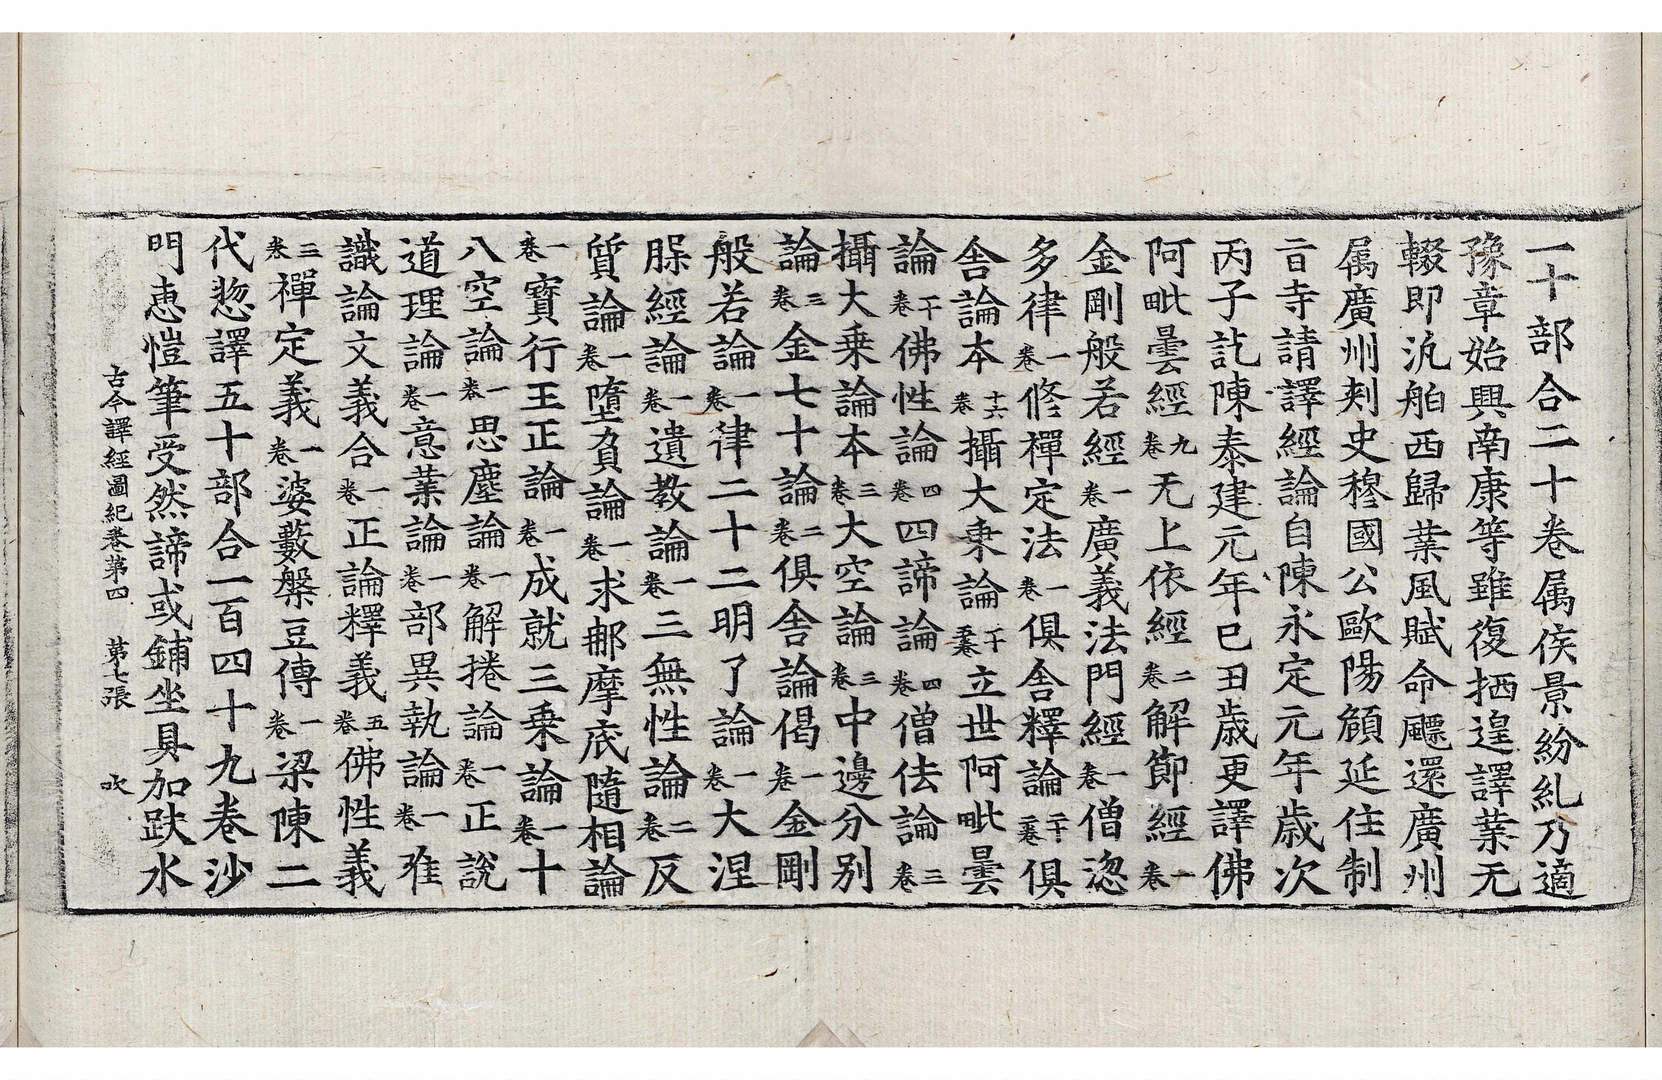 一十部合二十卷属侯景紛糺乃適
豫章始興南康等雖復栖遑譯葉无
輟即汎舶西歸葉風賦命飄還廣州
属廣州刾史穆國公歐陽頠延住制
㫖寺請譯經論自陳永定元年歲次
丙子訖陳泰建元年己丑歲更譯佛
阿毗曇經九卷无上依經二卷解節經一卷
金剛般若經一卷廣義法門經一卷僧澁
多律一卷修禪定法一卷俱舍釋論二十二卷俱
舍論本十六卷攝大乗論十五卷立世阿毗曇
論十卷佛性論四卷四諦論四卷僧佉論三卷
攝大乗論本三卷大空論三卷中邊分別
論三卷金七十論二卷俱舍論偈一卷金剛
般若論一卷律二十二明了論一卷大涅
䏶經論一卷遺教論一卷三無性論二卷反
質論一卷墮負論一卷求郍摩底隨相論
一卷寶行王正論一卷成就三乗論一卷十
八空論一卷思塵論一卷解捲論一卷正說
道理論一卷意業論一卷部異執論一卷唯
識論文義合一卷正論釋義五卷佛性義
三卷禪定義一卷婆藪槃豆傳一卷梁陳二
代惣譯五十部合一百四十九卷沙
門恵愷筆受然諦或鋪坐具加趺水
古今譯經圖紀卷第四 第七張 吹